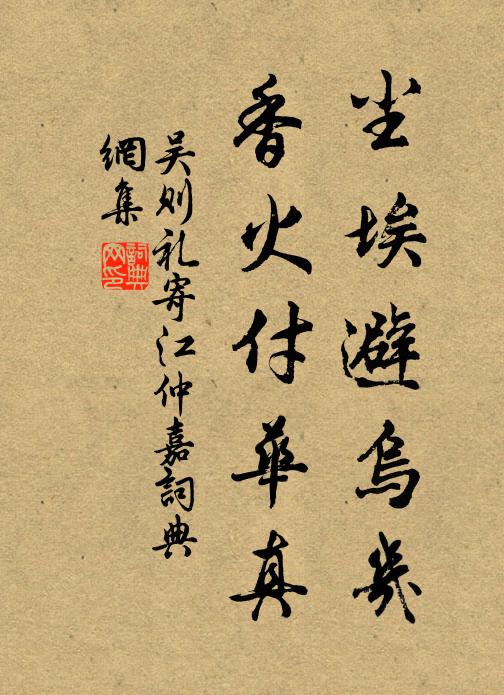 尘埃避乌几
香火付华真
吴则礼寄江仲嘉詞典
網集
詞典网印